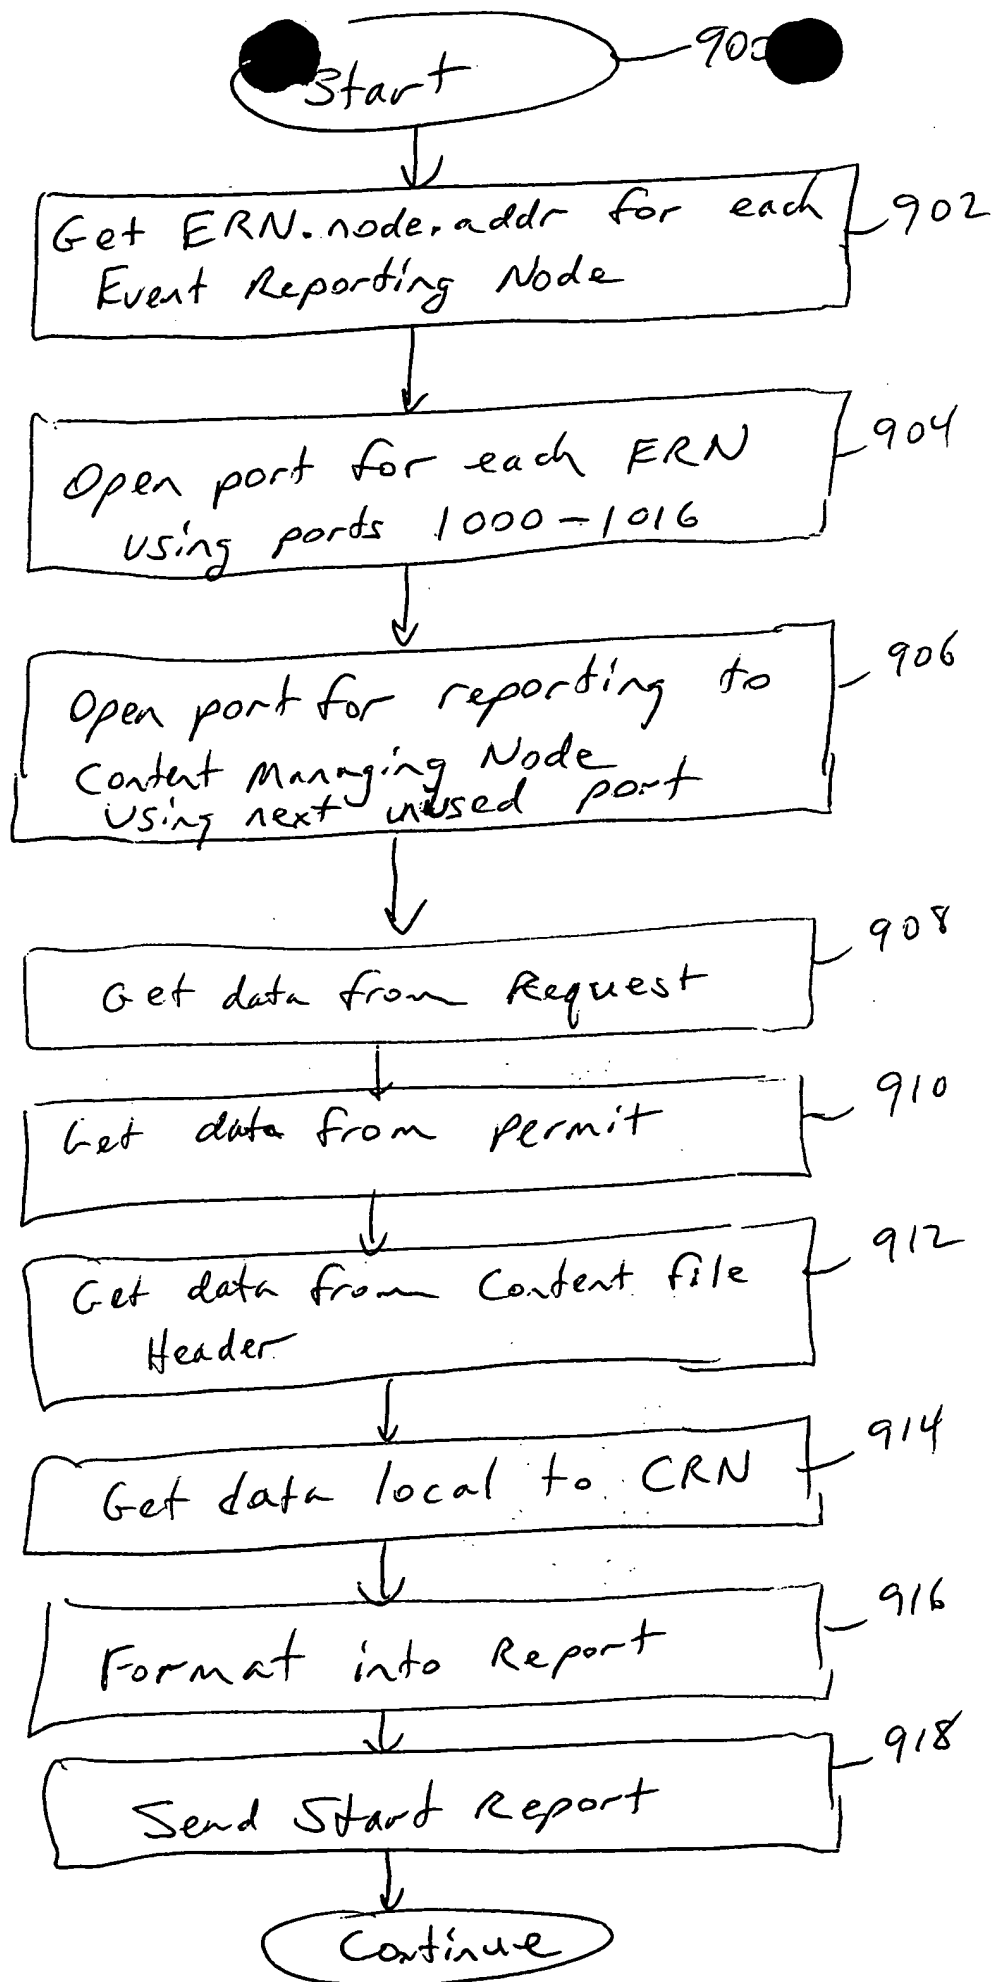 Start
902
Get ERN.node.addr for each
Event Reporting Node
904
Open port for each ERN
using ports 1000-1016
906
Open port for reporting to
Content Managing Node
using next unused port
908
Get data from Request
910
Get data from permit
912
Get data from Content file
Header
914
Get data local to CRN
916
Format into Report
918
Send Start Report
Continue